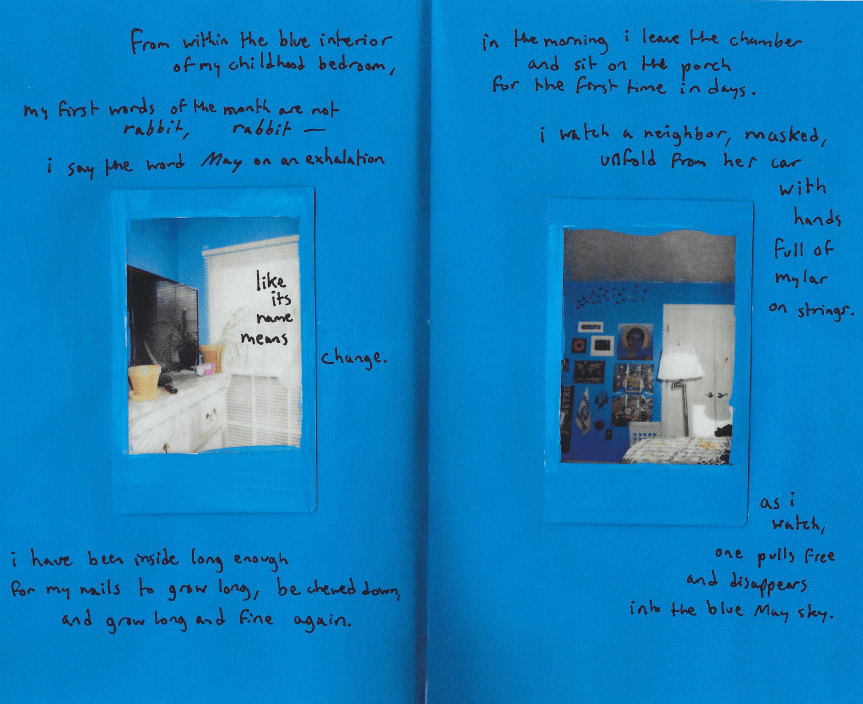 From within the blue interior
of my childhood bedroom,
my first words of the month are not
rabbit, rabbit —
i say the word May on an exhalation
like
its
name
means
change.
i have been inside long enough
for my nails to grow long, be chewed down,
and grow long and fine again.
in the morning i leave the chamber
and sit on the porch
for the first time in days.
i watch a neighbor, masked,
unfold from her car
with
hands
full of
mylar
on strings.
as i
watch,
one pulls free
and disappears
into the blue May sky.